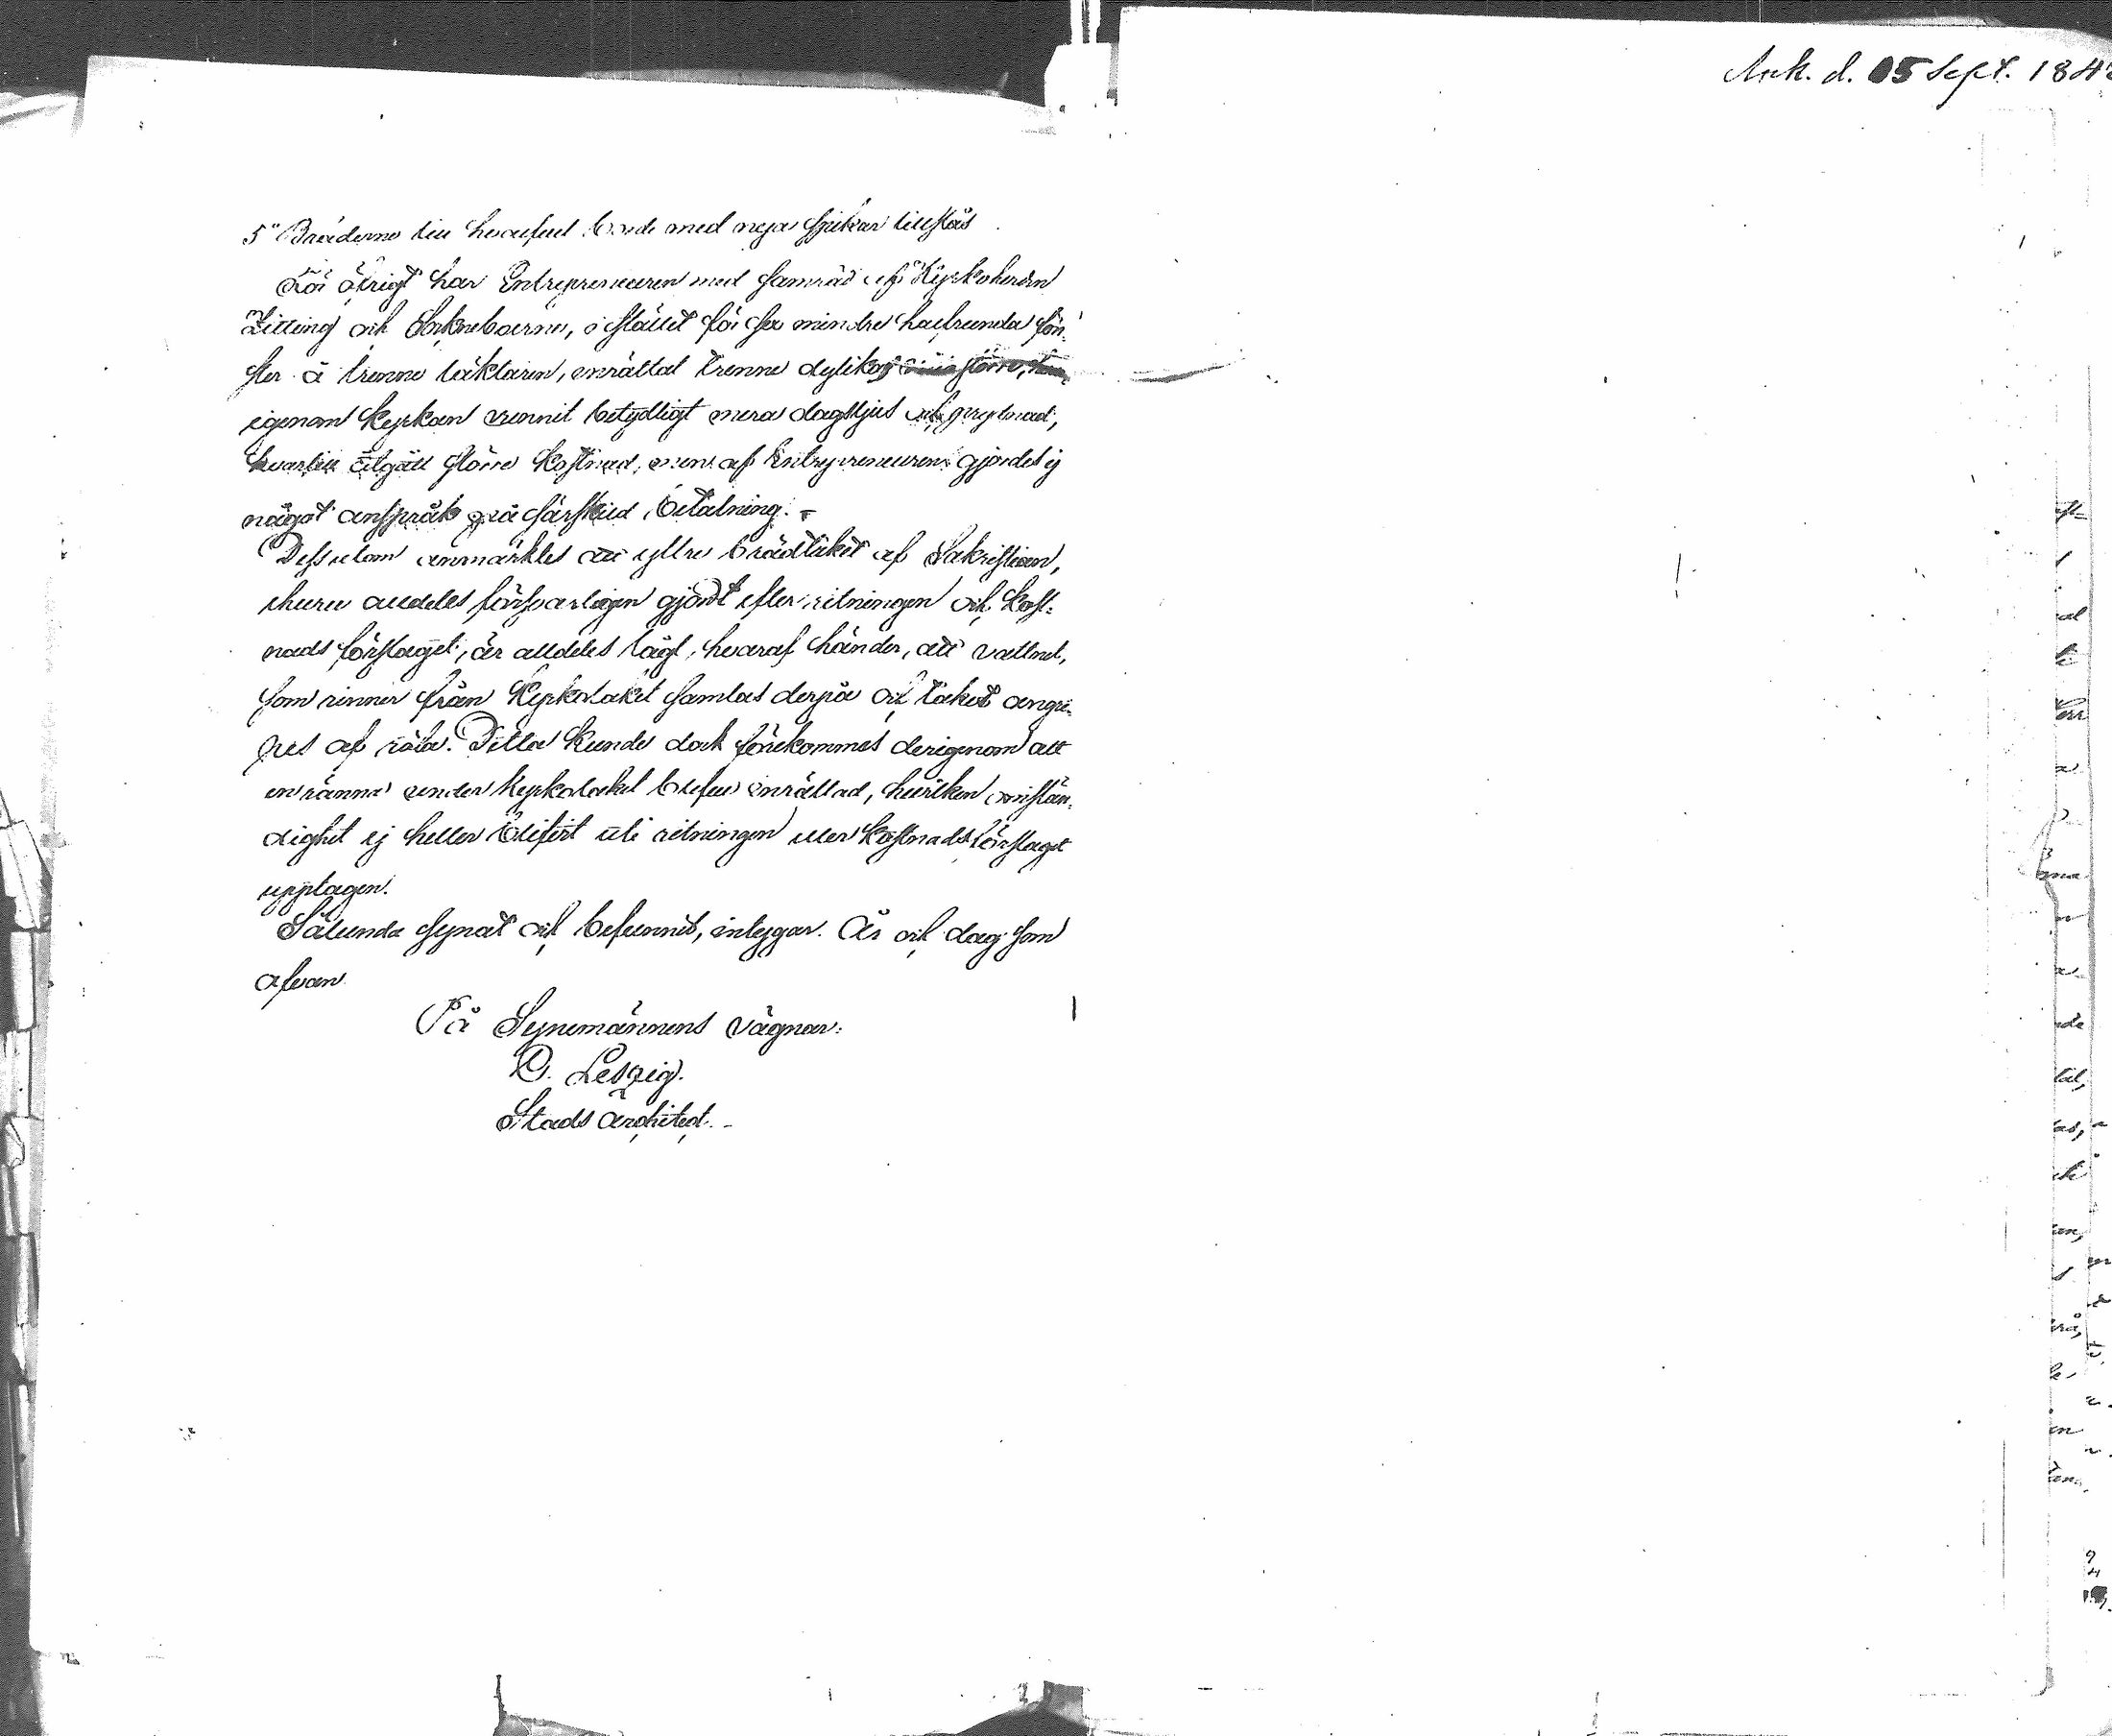 Ank. d. 15 Sept. 184
5° Bräderne till hvalfvel borde med nya spikar tillslås
För öfrigt har Entrepreneuren med samråd af Kyrkoherdn
Zitting och Sokneboerne, i stället för sex mindre halfrunda fön-
ster å trenne läktaren, inrättat trenne dylika större, hvar-
igenom Kyrkan vunnit betydligt mera dagsljus och prydnad,
hvartill åtgått större kostnad, men af Entrepreneuren gjordes ej
något anspråk på särskild betalning. -
Dessutom anmärktes att yttre brädtaket af Sakristian,
ehuru alldeles försvarligen gjordt efter ritningen och Kost-
nads förslaget, är alldeles lågt, hvaraf händer, att vattnet,
som rinner från Kyrkotaket samlas derpå och taket angri-
pes af röta. Detta kunde dock förekommas derigenom att
en ränna under kyrkotaket blefve inrättad, hvilken omstän-
dighet ej heller blifvit uti ritningen eller kostnads förslaget
upptagen.
Sålunda synat och befunnit, intygar. År och dag som
ofvan
På Synemännens vägnar:
C. Leszig.
Stads Architect. -